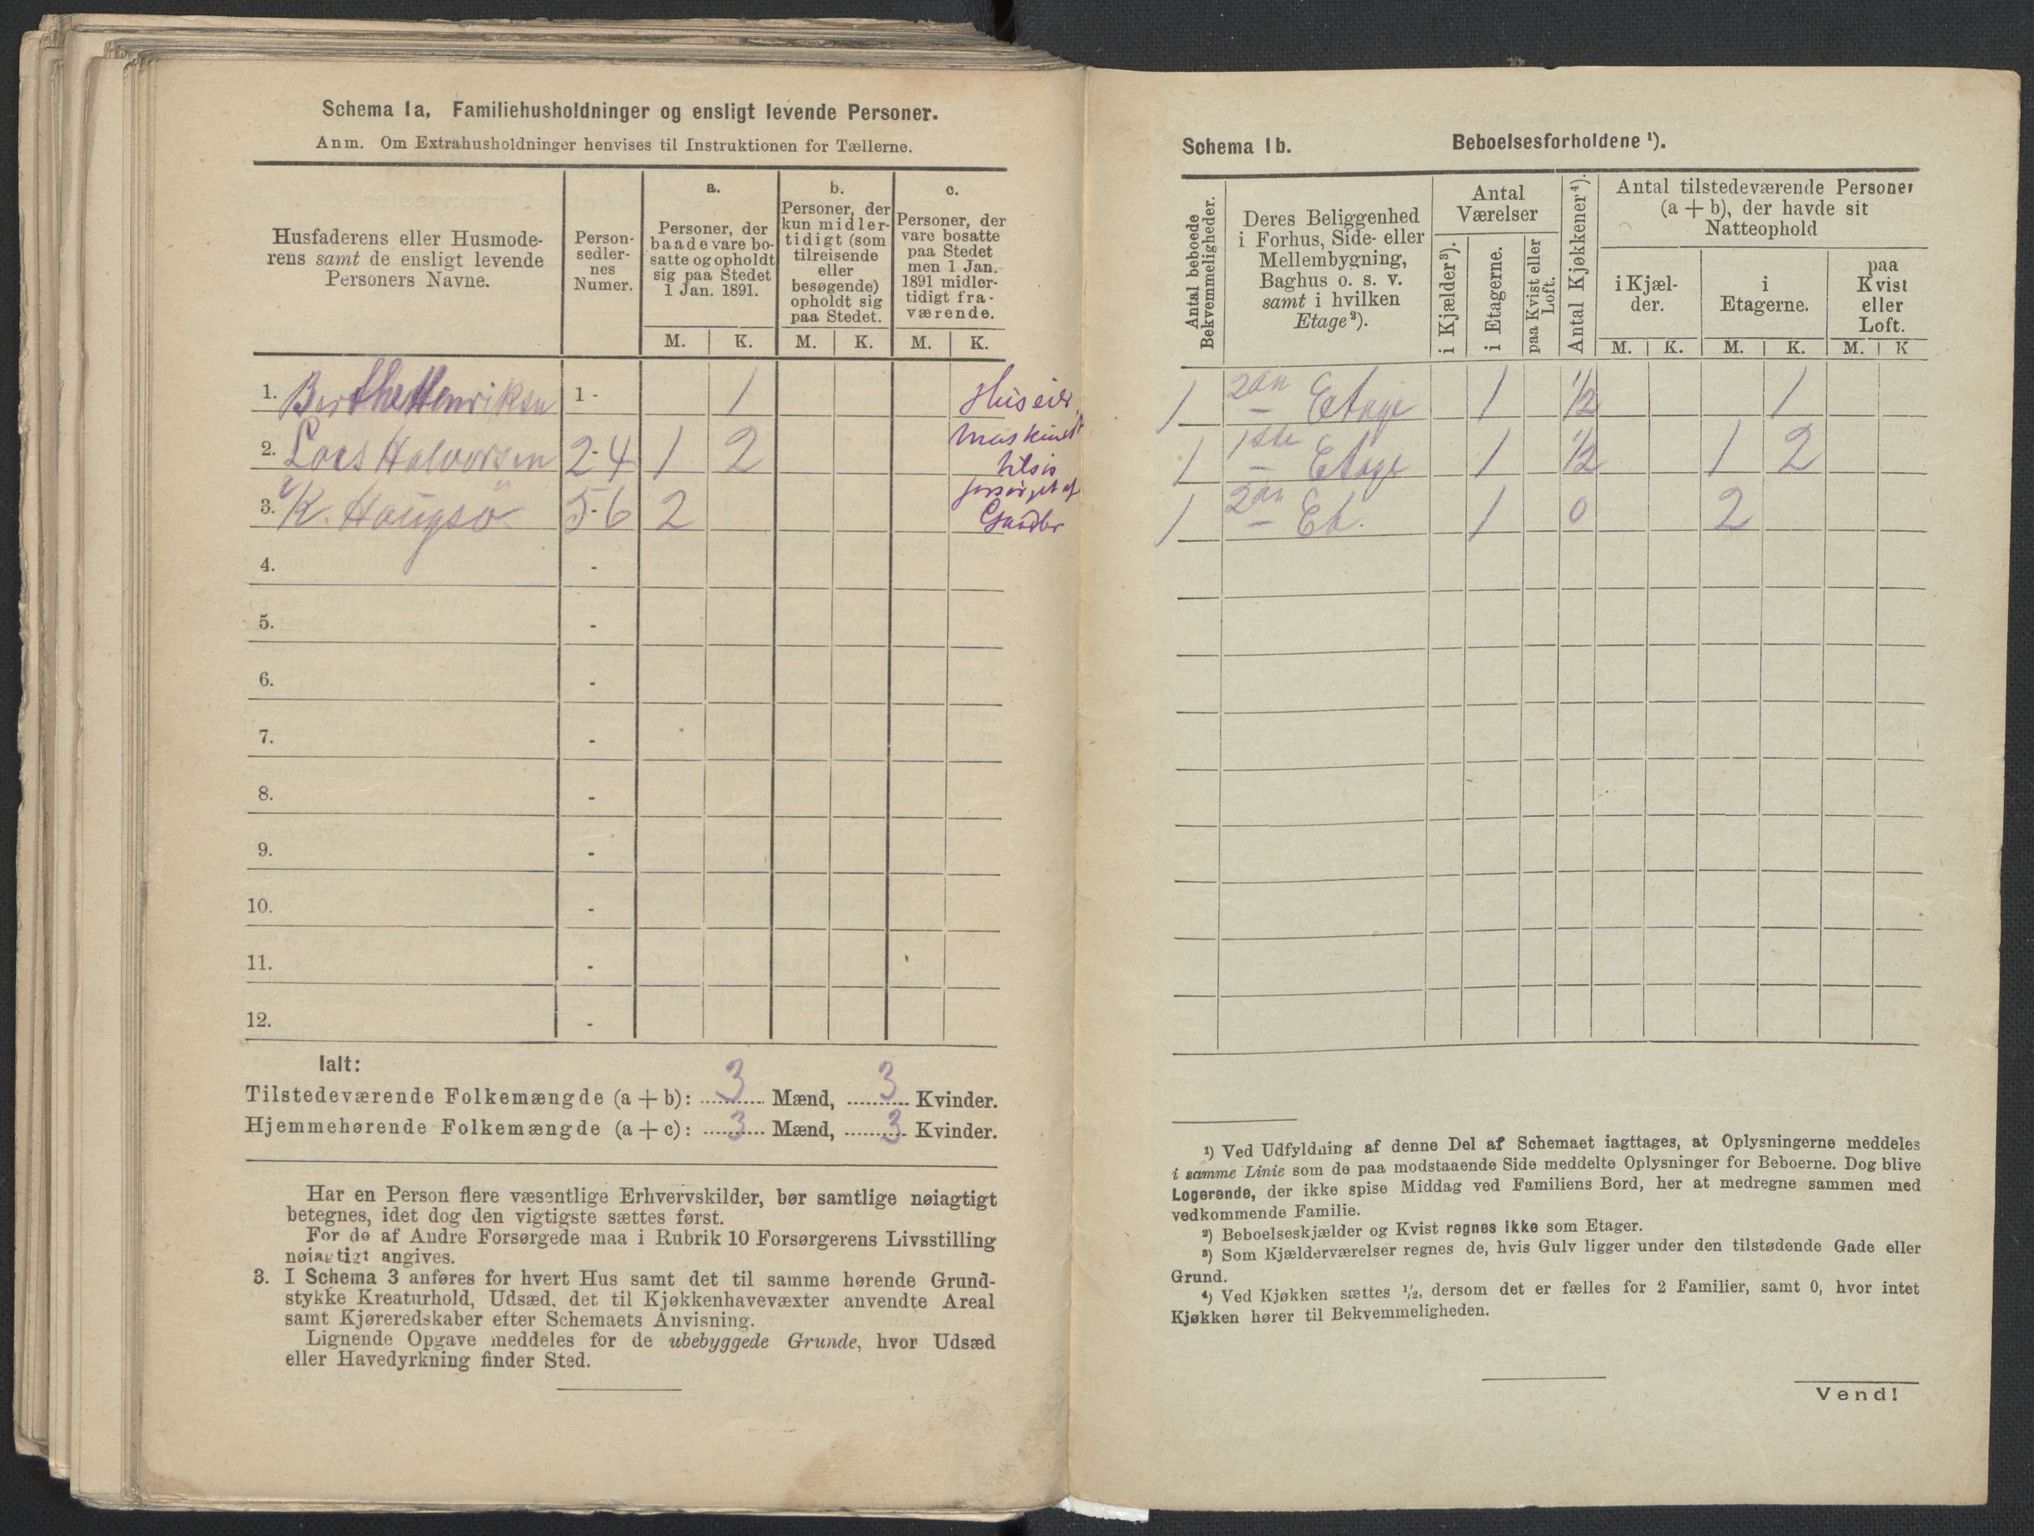 Schema 1a, Familiehusholdninger og ensligt levende Personer.
Anm. Om Extrahusholdninger henvises til Instruktionen for Tællerne.
Husfaderens eller Husmode-
rens samt de ensligt levende
Personers Navne.
Person-
sedler-
nes
Numer.
a.
Personer, der
baade vare bo-
satte og opholdt
sig paa Stedet
1 Jan. 1891.
b.
Personer, der
kun midler-
tidigt (som
tilreisende
eller
besøgende)
opholdt sig
paa Stedet.
c.
Personer, der
vare bosatte
paa Stedet
men 1 Jan.
1891 midler-
tidigt fra-
værende.
M. K. M. K. M. K.
1. Berthe Henriksen 1 - 1 Huseier
2. Lars Halvorsen 2-4 1 2
3. K. Haugsö 5-6 2 forsörget af
4. -
5. -
6. -
7. -
8. -
9. -
10. -
11. -
12. -
Ialt:
Tilstedeværende Folkemængde (a + b): 3 Mænd, 3 Kvinder.
Hjemmehørende Folkemængde (a + c): 3 Mænd, 3 Kvinder.
Har en Person flere væsentlige Erhvervskilder, bør samtlige nøiagtigt
betegnes, idet dog den vigtigste sættes først.
For de af Andre Forsørgede maa i Rubrik 10 Forsørgerens Livsstilling
nøiagtigt angives.
3. I Schema 3 anføres for hvert Hus samt det til samme hørende Grund-
stykke Kreaturhold, Udsæd, det til Kjøkkenhavevæxter anvendte Areal
samt Kjøreredskaber efter Schemaets Anvisning.
Lignende Opgave meddeles for de ubebyggede Grunde, hvor Udsæd
eller Havedyrkning finder Sted.
Schema 1b. Beboelsesforholdene ¹).
Antal beboede
Bekvemmeligheder.
Deres Beliggenhed
i Forhus, Side- eller
Mellembygning,
Baghus o. s. v.
samt i hvilken
Etage²).
Antal
Værelser
i Kjælder³).
i Etagerne.
paa Kvist eller
Loft.
Antal Kjøkkener⁴).
Antal tilstedeværende Personer
(a + b), der havde sit
Natteophold
i Kjæl-
der.
i
Etagerne.
paa
Kvist
eller
Loft.
M. K. M. K. M. K
1 2den Etage 1 1/2 1
1 1ste Etage 1 1/2 1 2
1 2den Et. 1 0 2
¹) Ved Udfyldning af denne Del af Schemaet iagttages, at Oplysningerne meddeles
i samme Linie som de paa modstaaende Side meddelte Oplysninger for Beboerne. Dog blive
Logerende, der ikke spise Middag ved Familiens Bord, her at medregne sammen med
vedkommende Familie.
²) Beboelseskjælder og Kvist regnes ikke som Etager.
³) Som Kjælderværelser regnes de, hvis Gulv ligger under den tilstødende Gade eller
Grund.
⁴) Ved Kjøkken sættes ½, dersom det er fælles for 2 Familier, samt 0, hvor intet
Kjøkken hører til Bekvemmeligheden.
Vend!